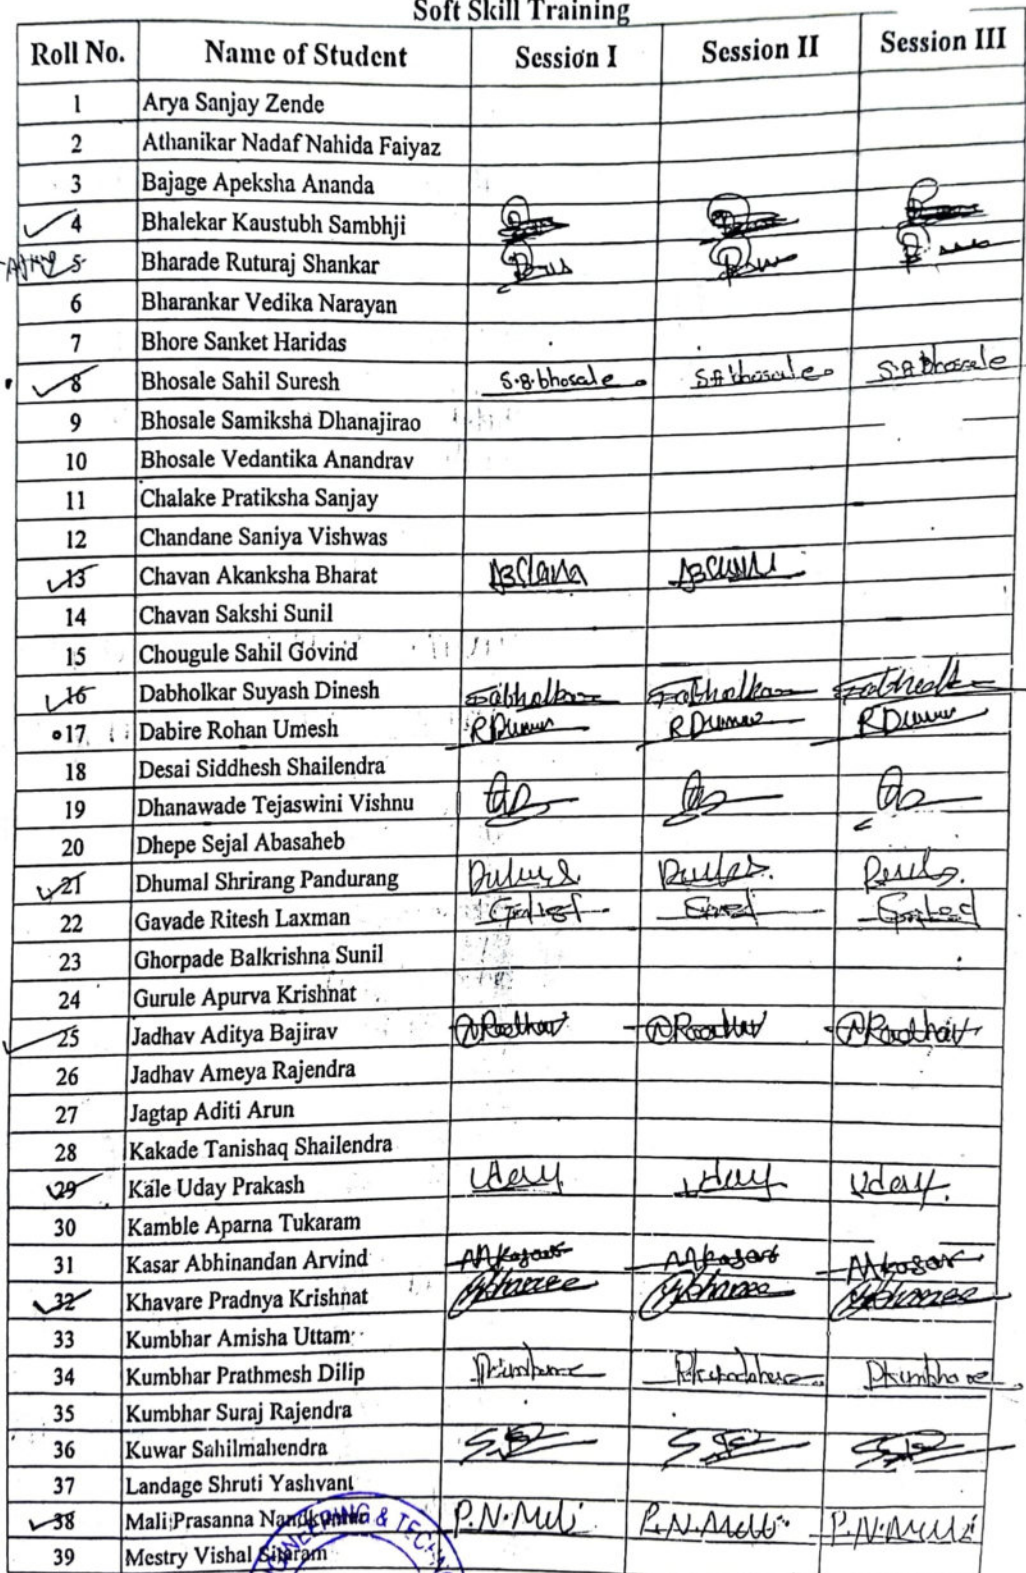 Soft Skill Training
Roll No. Name of Student Session I Session II Session III
1 Arya Sanjay Zende
2 Athanikar Nadaf Nahida Faiyaz
3 Bajage Apeksha Ananda
4 Bhalekar Kaustubh Sambhji
5 Bharade Ruturaj Shankar
6 Bharankar Vedika Narayan
7 Bhore Sanket Haridas
8 Bhosale Sahil Suresh S.B.bhosale S.A bhosale S.A Bhosale
9 Bhosale Samiksha Dhanajirao
10 Bhosale Vedantika Anandrav
11 Chalake Pratiksha Sanjay
12 Chandane Saniya Vishwas
13 Chavan Akanksha Bharat
14 Chavan Sakshi Sunil
15 Chougule Sahil Govind
16 Dabholkar Suyash Dinesh
17 Dabire Rohan Umesh
18 Desai Siddhesh Shailendra
19 Dhanawade Tejaswini Vishnu
20 Dhepe Sejal Abasaheb
21 Dhumal Shrirang Pandurang
22 Gavade Ritesh Laxman
23 Ghorpade Balkrishna Sunil
24 Gurule Apurva Krishnat
25 Jadhav Aditya Bajirav
26 Jadhav Ameya Rajendra
27 Jagtap Aditi Arun
28 Kakade Tanishaq Shailendra
29 Kale Uday Prakash Uday Uday Uday.
30 Kamble Aparna Tukaram
31 Kasar Abhinandan Arvind
32 Khavare Pradnya Krishnat
33 Kumbhar Amisha Uttam
34 Kumbhar Prathmesh Dilip
35 Kumbhar Suraj Rajendra
36 Kuwar Sahilmahendra
37 Landage Shruti Yashvant
38 Mali Prasanna Nandkumar P.N.Mali P.N.Mali P.N.Mali
39 Mestry Vishal Sitaram